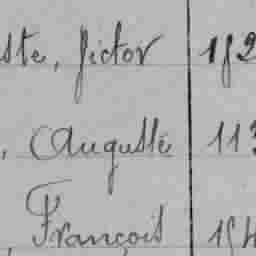 ste, Victor
, Auguste 113
, François